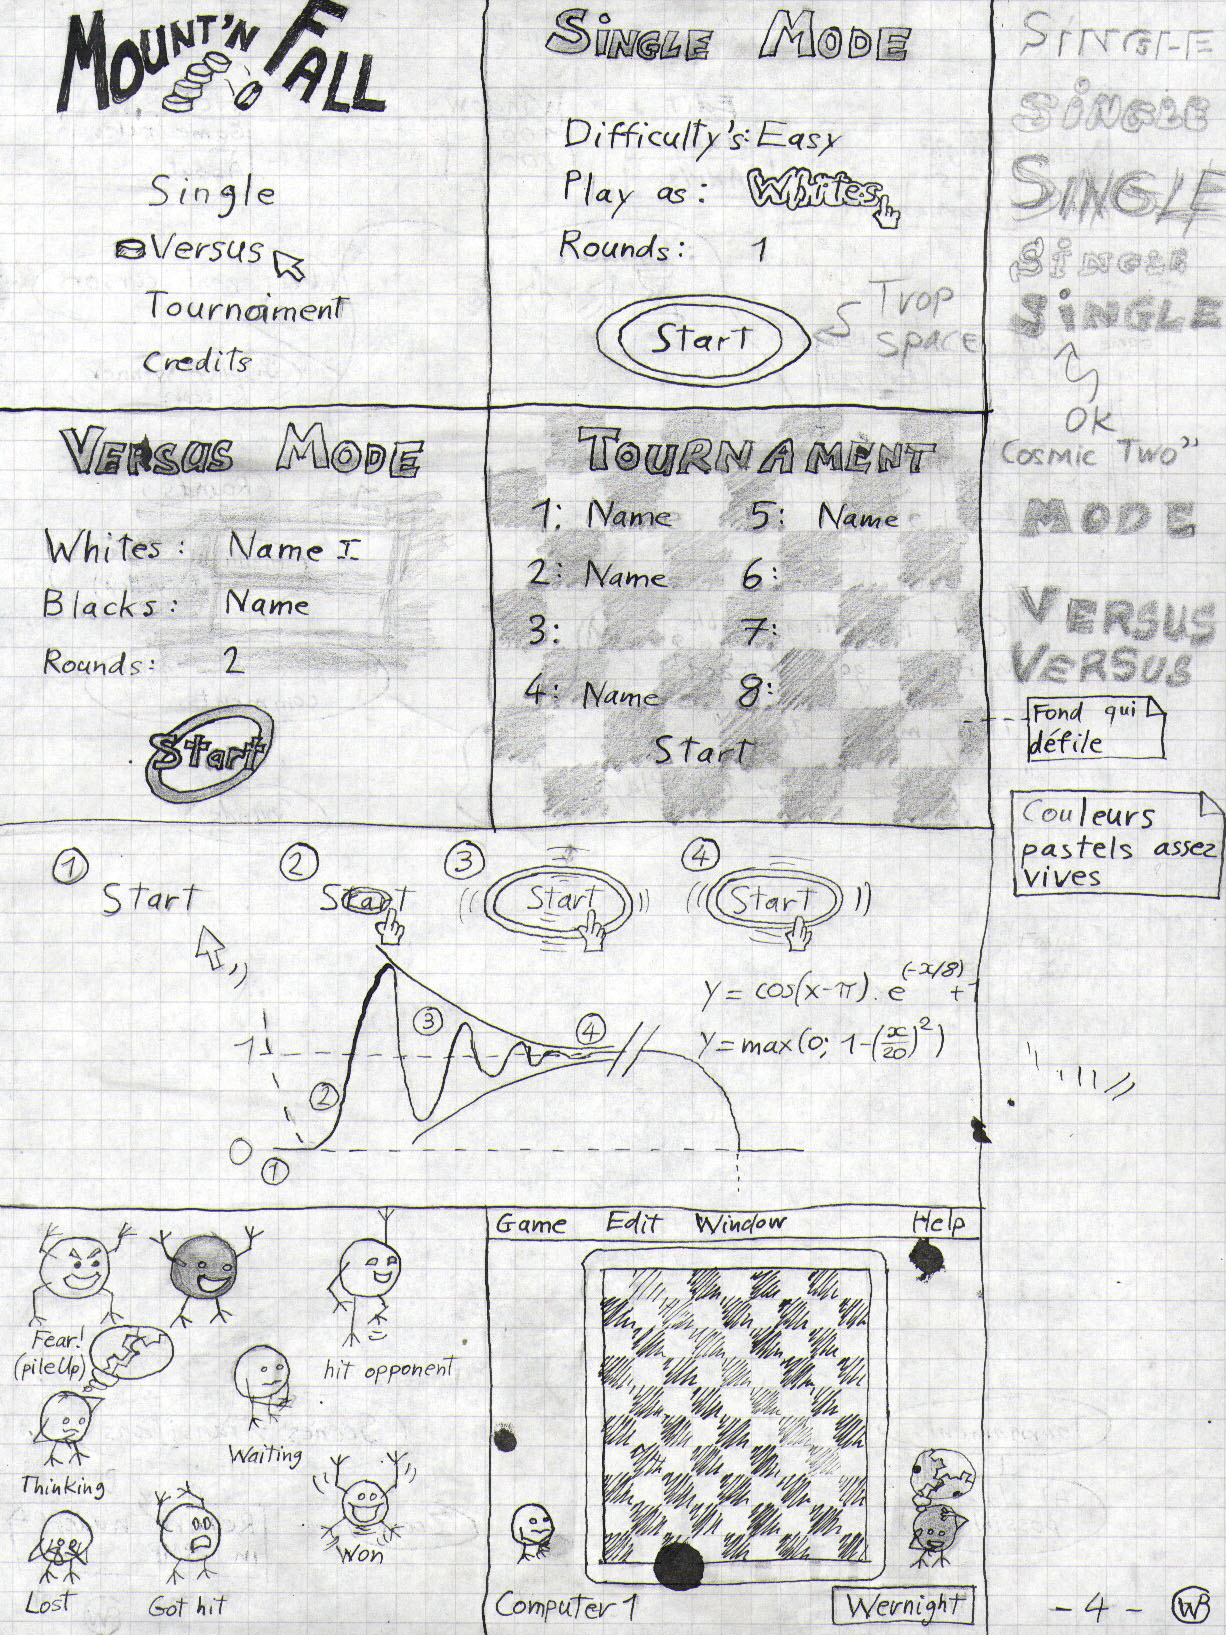 MOUNT'N FALL
Single
Versus
Tournaiment
Credits
SINGLE MODE
Difficulty's: Easy
Play as: Whites
Rounds: 1
Start
Trop
space
SINGLE
SiNGLE
SINGLE
SiNGLE
SiNGLE
OK
"Cosmic Two"
MODE
VERSUS
VERSUS
VERSUS MODE
Whites: Name
Blacks: Name
Rounds: 2
Start
TOURNAMENT
1: Name 5: Name
2: Name 6:
3: 7:
4: Name 8:
Start
Fond qui
défile
Couleurs
pastels assez
vives
1 Start
2 Start
3 Start
4 Start
y = cos(x-π).e^(-x/8) +1
y = max(0; 1-(x/20)²)
1
0
1
2
3
4
Fear!
(pileUp)
hit opponent
Thinking
Waiting
Lost
Got hit
Won
Game Edit Window Help
Computer 1
Wernight
- 4 -
WB